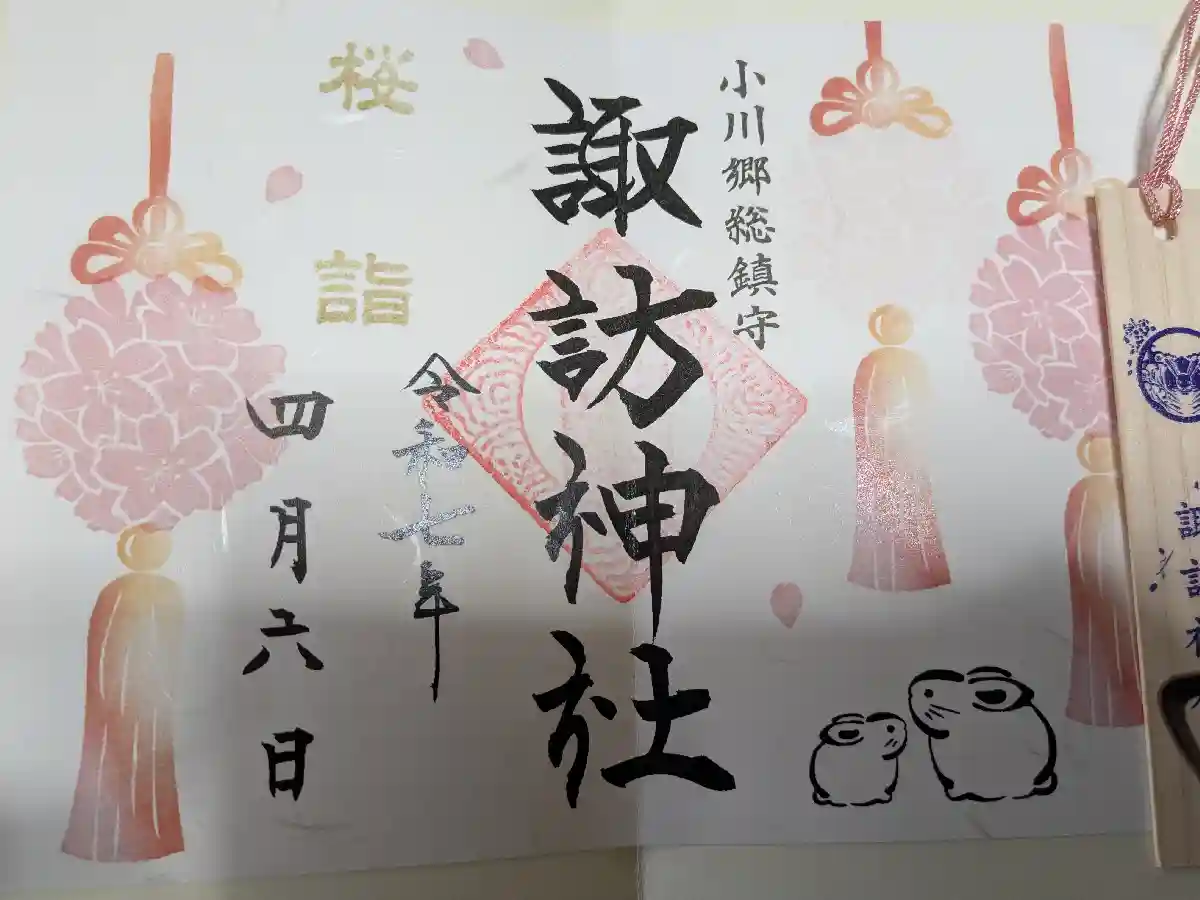 小川郷総鎮守
諏訪神社
令和七年
四月六日
桜詣
諏訪神